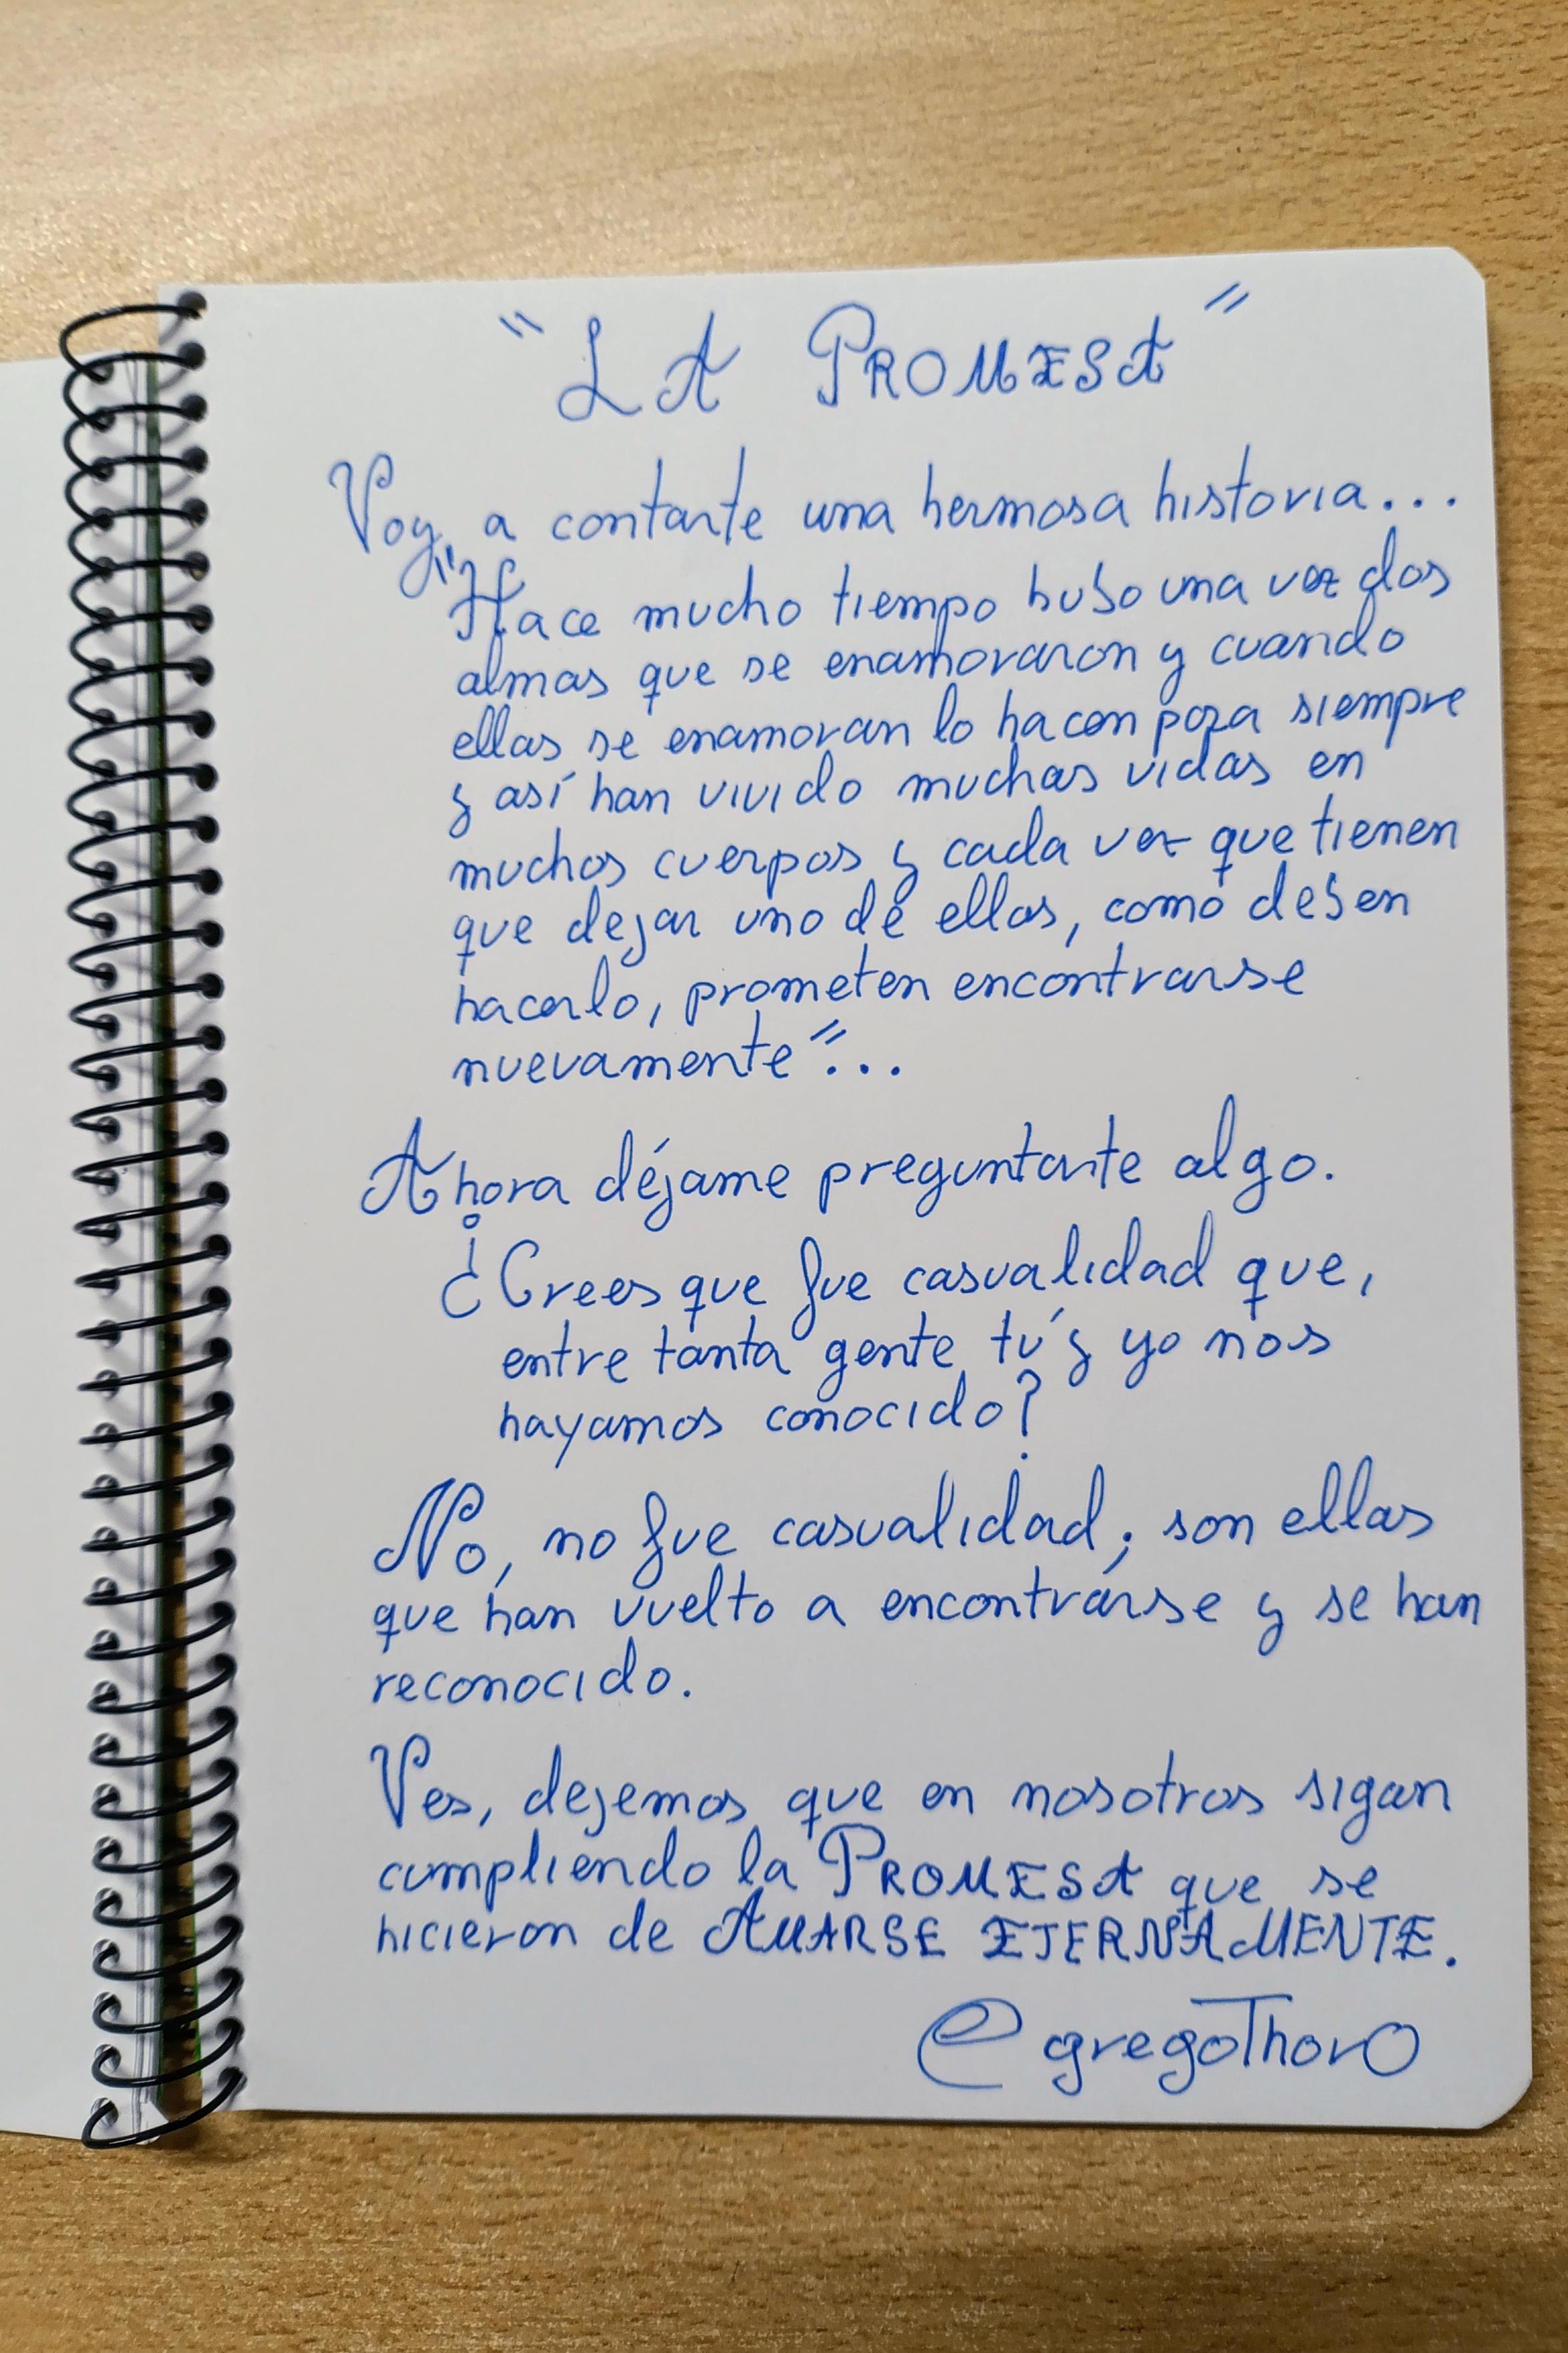 "LA PROMESA"
Voy a contarte una hermosa historia...
"Hace mucho tiempo hubo una vez dos
almas que se enamoraron y cuando
ellas se enamoran lo hacen para siempre
y así han vivido muchas vidas en
muchos cuerpos y cada vez que tienen
que dejar uno de ellos, como deben
hacerlo, prometen encontrarse
nuevamente"...
Ahora déjame preguntarte algo.
¿Crees que fue casualidad que,
entre tanta gente tú y yo nos
hayamos conocido?
No, no fue casualidad; son ellas
que han vuelto a encontrarse y se han
reconocido.
Ves, dejemos que en nosotros sigan
cumpliendo la PROMESA que se
hicieron de AMARSE ETERNAMENTE.
@gregoThorO